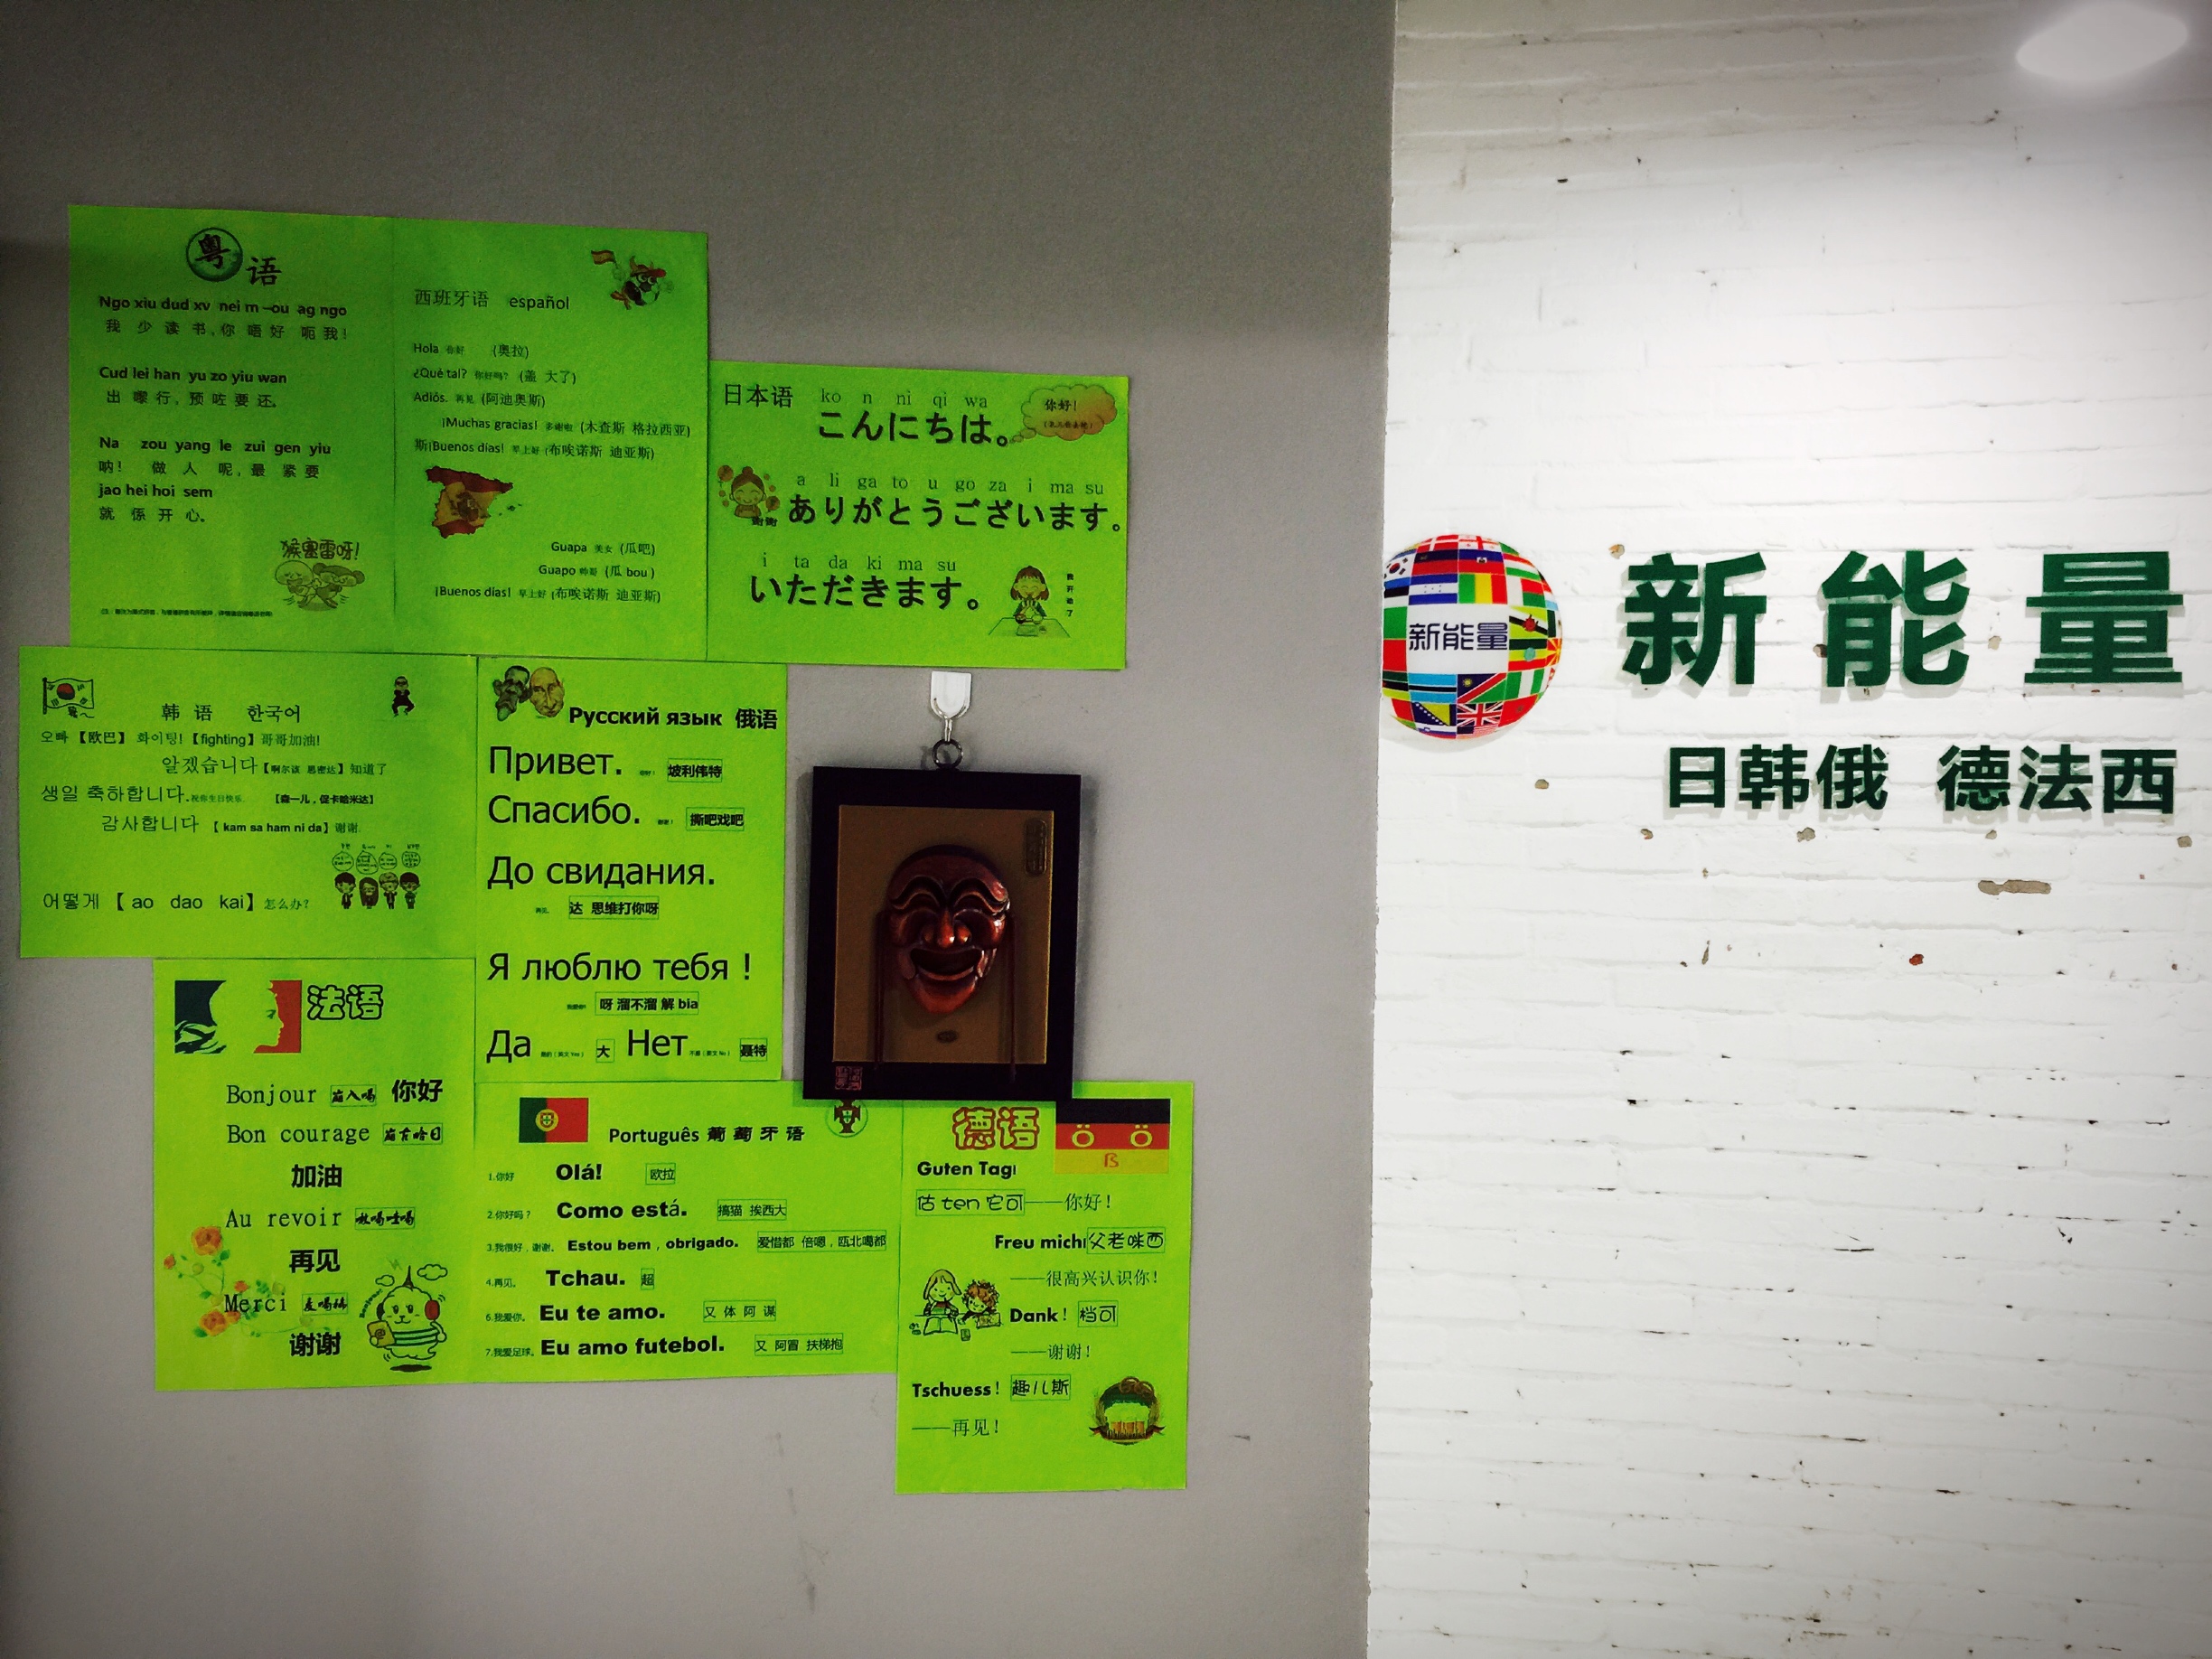 粤语
Ngo xiu dud xv nei m-ou ag ngo
我 少 读 书,你 唔 好 呃 我!
Cud lei han yu zo yiu wan
出 嚟 行, 预 咗 要 还。
Na zou yang le zui gen yiu
呐! 做 人 呢, 最 紧 要
jao hei hoi sem
就 係 开 心。
猴塞雷呀!
西班牙语 español
Hola 你好 (奥拉)
¿Qué tal? 你好吗? (盖 大了)
Adiós. 再见 (阿迪奥斯)
¡Muchas gracias! 多谢啦 (木查斯 格拉西亚)
斯¡Buenos días! 早上好 (布唉诺斯 迪亚斯)
Guapa 美女 (瓜吧)
Guapo 帅哥 (瓜 bou )
¡Buenos días! 早上好 (布唉诺斯 迪亚斯)
日本语
ko n ni qi wa
こんにちは。
你好!
a li ga to u go za i ma su
ありがとうございます。
谢谢
i ta da ki ma su
いただきます。
我开动了
韩 语 한국어
오빠 【欧巴】 화이팅! 【fighting】哥哥加油!
알겠습니다【啊尔该 思密达】知道了
생일 축하합니다. 祝你生日快乐. 【森一儿，促卡哈米达】
감사합니다 【 kam sa ham ni da】谢谢.
어떻게 【 ao dao kai】怎么办?
Русский язык 俄语
Привет. 你好! 坡利伟特
Спасибо. 谢谢! 撕吧戏吧
До свидания.
再见. 达 思维打你呀
Я люблю тебя !
我爱你! 呀 溜不溜 解 bia
Да 是的（英文 Yes） 大 Нет 不是（英文 No） 聂特
法语
Bonjour 崩入喝 你好
Bon courage 崩古哈日
加油
Au revoir 敖喝哇喝
再见
Merci 麦喝稀
谢谢
Português 葡萄牙语
1.你好 Olá! 欧拉
2.你好吗？ Como está. 搞猫 挨西大
3.我很好，谢谢。 Estou bem , obrigado. 爱惜都 倍嗯，瓯北噶都
4.再见。 Tchau. 超
6.我爱你。 Eu te amo. 又 体 阿 谋
7.我爱足球。 Eu amo futebol. 又 阿冒 扶梯抱
德语
Ö Ö
ß
Guten Tag!
估 ten 它可——你好!
Freu mich!父老咪西
——很高兴认识你!
Dank! 档可
——谢谢!
Tschuess! 趣儿斯
——再见!
新能量
新能量
日韩俄 德法西